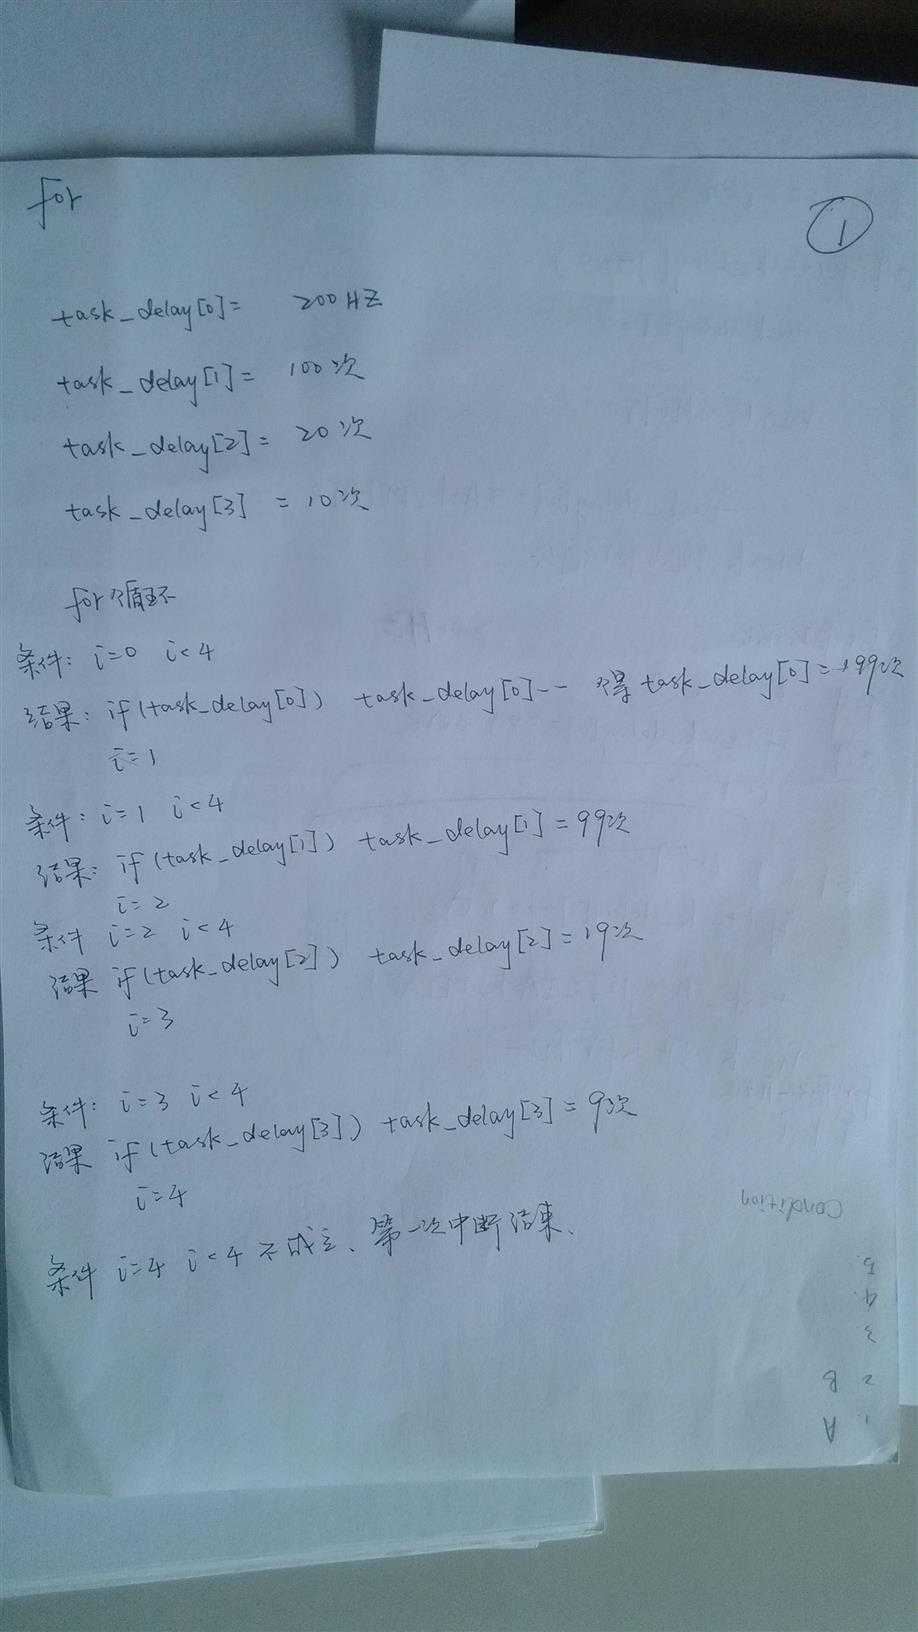 for
①
task_delay[0]= 200HZ
task_delay[1]= 100次
task_delay[2]= 20次
task_delay[3] = 10次
for循环
条件: i=0 i<4
结果: if(task_delay[0]) task_delay[0]-- 得task_delay[0]=199次
i=1
条件: i=1 i<4
结果: if(task_delay[1]) task_delay[1]=99次
i=2
条件 i=2 i<4
结果 if(task_delay[2]) task_delay[2]=19次
i=3
条件: i=3 i<4
结果 if(task_delay[3]) task_delay[3]=9次
i=4
条件 i=4 i<4 不成立、第一次中断结束、
Condition
5.
4.
3
2 B
1. A